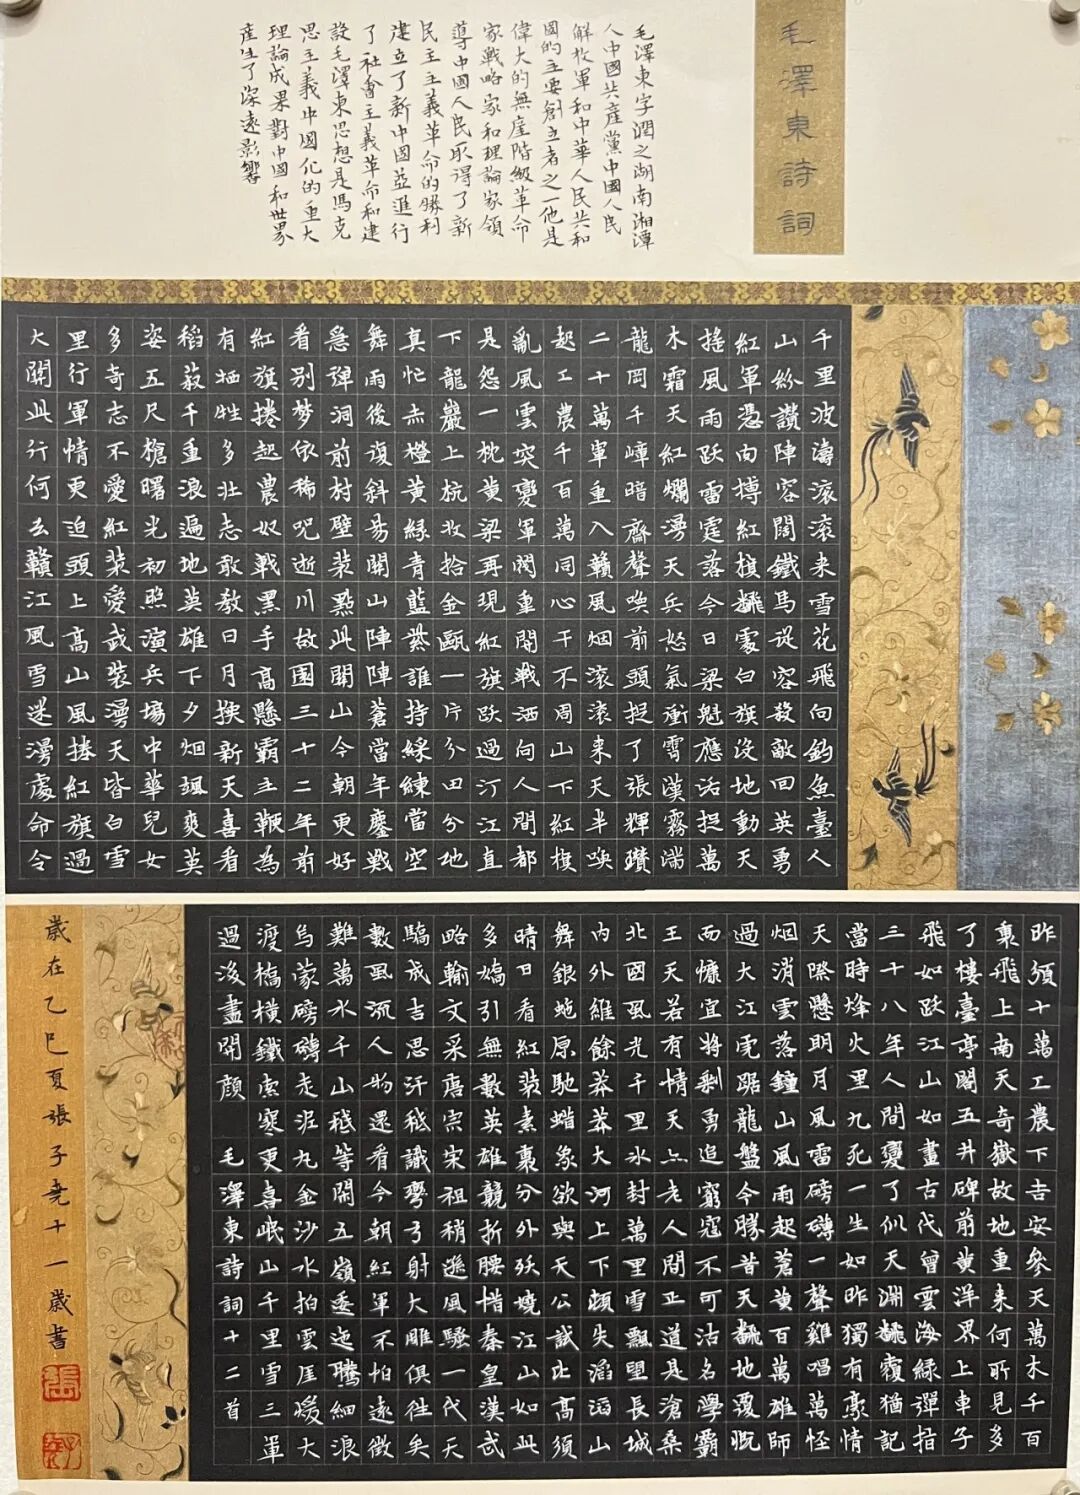 毛澤東詩詞
毛澤東字潤之湖南湘潭
人中國共產黨中國人民
解放軍和中華人民共和
國的主要創立者之一他是
偉大的無產階級革命
家戰略家和理論家領
導中國人民取得了新
民主主義革命的勝利
建立了新中國並進行
了社會主義革命和建
設毛澤東思想是馬克
思主義中國化的重大
理論成果對中國和世界
產生了深遠影響
千里波濤滾滾来雪花飛向釣魚臺人
山紛讚陣容闊鐵馬從容殺敵回英勇
紅軍憑向搏紅旗飜處白旗沒地動天
搖風雨跃雷霆落今日梁魁應活捉萬
木霜天紅爛漫天兵怒氣衝霄漢霧滿
龍岡千嶂暗齊聲喚前頭捉了張輝瓚
二十萬軍重入贛風烟滾滾来天半喚
起工農千百萬同心干不周山下紅旗
亂風雲突變軍閥重開戰洒向人間都
是怨一枕黄粱再現紅旗跃過汀江直
下龍巖上杭收拾金甌一片分田分地
真忙赤橙黄綠青藍紫誰持綵練當空
舞雨後復斜陽關山陣陣蒼當年鏖戰
急彈洞前村壁装點此關山今朝更好
看别梦依稀咒逝川故園三十二年前
紅旗捲起農奴戟黑手高懸霸主鞭為
有牺牲多壯志敢教日月換新天喜看
稻菽千重浪遍地英雄下夕烟颯爽英
姿五尺槍曙光初照演兵場中華兒女
多奇志不愛紅装愛武裝漫天皆白雪
里行軍情更迫頭上高山風捲紅旗過
大關此行何去贛江風雪迷漫處命令
昨頒十萬工農下吉安參天萬木千百
裏飛上南天奇嶽故地重来何所見多
了樓臺亭閣五井碑前黄洋界上車子
飛如跃江山如畫古代曾雲海綠彈指
三十八年人間變了似天淵飜覆猶記
當時烽火里九死一生如昨獨有豪情
天際懸明月風雷磅礴一聲雞唱萬怪
烟消雲落鐘山風雨起蒼黄百萬雄師
過大江虎踞龍盤今勝昔天飜地覆慨
而慷宜將剩勇追窮寇不可沽名學霸
王天若有情天亦老人間正道是滄桑
北國風光千里冰封萬里雪飄望長城
内外維餘莽莽大河上下頓失滔滔山
舞銀蛇原馳蠟象欲與天公試比高須
晴日看紅装素裹分外妖嬈江山如此
多嬌引無數英雄競折腰惜秦皇漢武
略輸文采唐宗宋祖稍遜風騷一代天
驕成吉思汗祗識彎弓射大雕俱往矣
數風流人物還看今朝紅軍不怕遠徵
難萬水千山祗等閑五嶺逶迤騰細浪
烏蒙磅礴走泥丸金沙水拍雲厓煖大
渡橋橫鐵索寒更喜岷山千里雪三軍
過後盡開顏 毛澤東詩詞十二首
歲在乙巳夏張子堯十一歲書
張